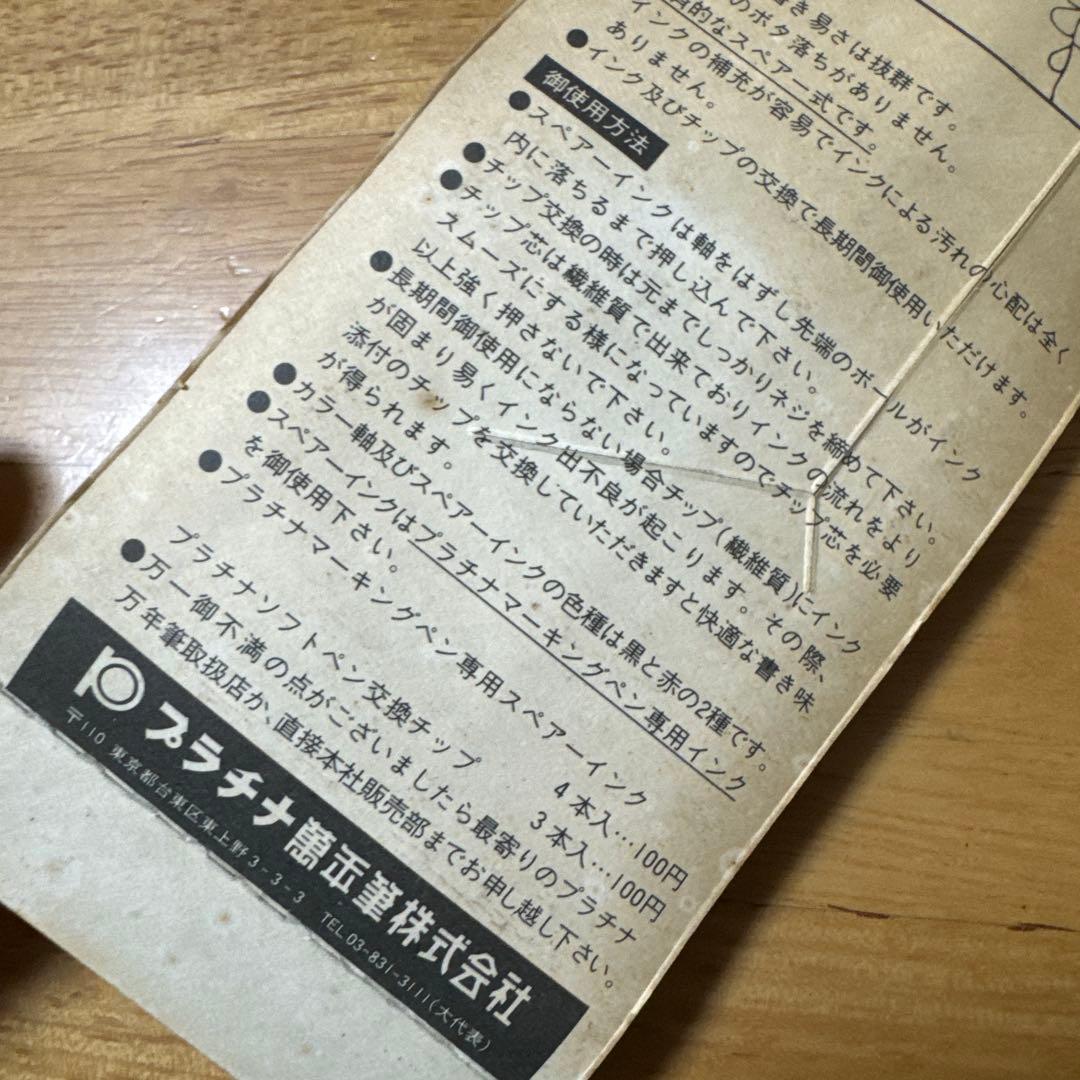 書き易さは抜群です。
のボタ落ちがありません。
的なスペアー式です。
インクの補充が容易でインクによる汚れの心配は全く
ありません。
●インク及びチップの交換で長期間御使用いただけます。
御使用方法
●スペアーインクは軸をはずし先端のボールがインク
内に落ちるまで押し込んで下さい。
●チップ交換の時は元までしっかりネジを締めて下さい。
●チップ芯は繊維質で出来ておりインクの流れをより
スムーズにする様になっていますのでチップ芯を必要
以上強く押さないで下さい。
●長期間御使用にならない場合チップ(繊維質)にインク
が固まり易くインク出不良が起こります。その際、
添付のチップを交換していただきますと快適な書き味
が得られます。
●カラー軸及びスペアーインクの色種は黒と赤の2種です。
●スペアーインクはプラチナマーキングペン専用インク
を御使用下さい。
●プラチナマーキングペン専用スペアーインク
4本入…100円
プラチナソフトペン交換チップ
3本入…100円
●万一御不満の点がございましたら最寄りのプラチナ
万年筆取扱店か、直接本社販売部までお申し越し下さい。
プラチナ萬年筆株式会社
〒110 東京都台東区東上野3-3-3 TEL03-831-3111(大代表)